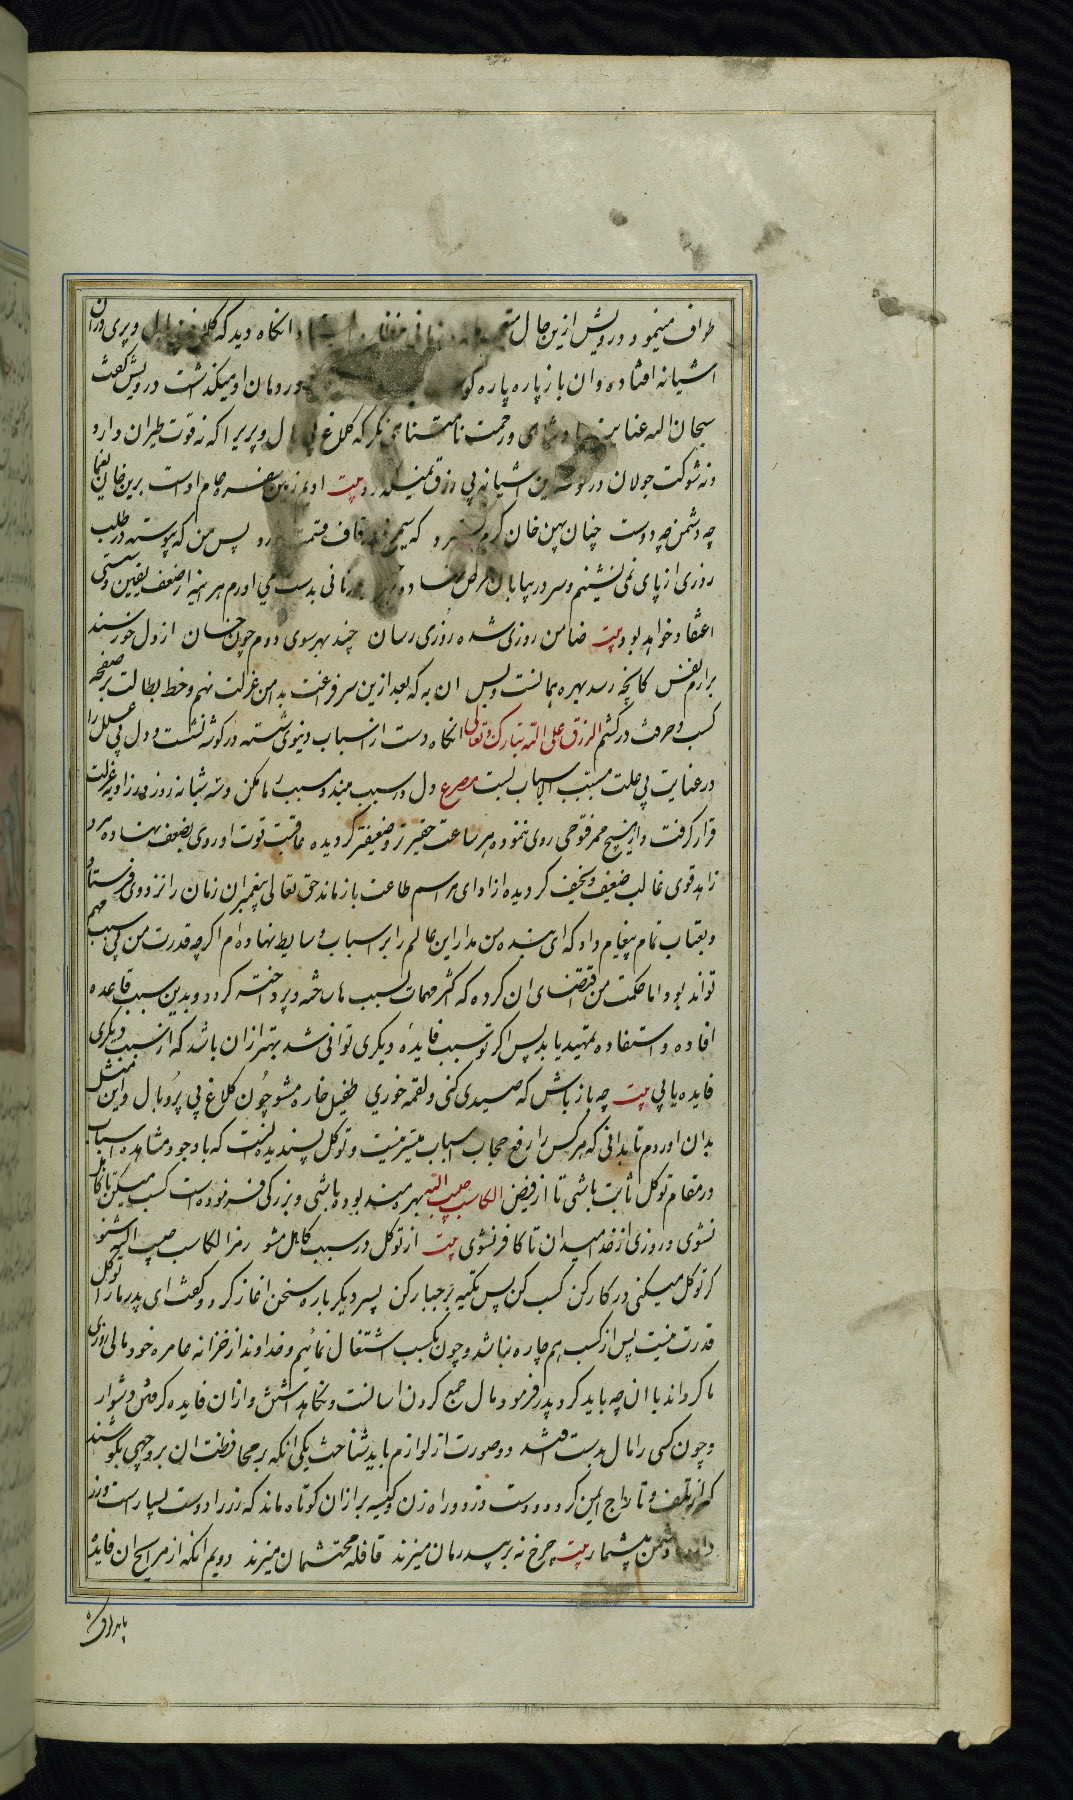 طراف مینمود درویش ازین حال متعجب انکاه دید که کلاغ بی بال و پری دران
اشیانه افتاده و ان باز پاره پاره کو در دهان او میکذاشت درویش کفت
سبحان الله عنایت پادشاهی و رحمت نامتناهی نکر که کلاغ بی بال و پریرا که نه قوت طیران دارد
و نه شوکت جولان در کوشه این اشیانه بی رزق نمیکذارد بیت ادیم زمین سفره عام اوست برین خوان یغما
چه دشمن چه دوست چنان پهن خوان کرم کسترد که سیمرغ در قاف قسمت خورد پس من که پیوسته در طلب
روزی از پای نمی نشینم و سر در بیابان حرص نهاده نانی بدست می اورم هر اینه از ضعف یقین و سستی
اعتقاد خواهد بود بیت ضامن روزی شده روزی رسان چند بهر سوی دوم چون خسان از دل خورسند
برارم نفس کانچه رسد بهره همانست و بس ان به که بعد ازین سر فراغت بدامن عزلت نهم و خط بطالت بر صفحه
کسب و حرفت در کشم الرزق علی الله تبارک و تعالی انکاه دست از اسباب دنیوی شسته در کوشه نشست و دل بی علل را
در عنایت بی علت مسبب الاسباب بست مصرع دل در سبب مبند و مسبب رها مکن و سه شبانه روز در زاویه عزلت
قرار کرفت و از هیچ ممر فتوحی روی ننمود و هر ساعت حقیرتر و ضعیفتر کردیده عاقبت قوت او روی بضعف نهاده مرد
زاهد قوی غالب ضعیف و نحیف کردیده از ادای مراسم طاعت باز ماند حق تعالی پیغمبر ان زمان را نزد وی فرستاد
و بعتاب تمام پیغام داد که ای بنده من مدار این عالم را بر اسباب و سایط نهاده ام اکرچه قدرت من بی سبب مهم
تواند بود اما حکمت من اقتضای ان کرده که اکثر مهمات بسبب ها ساخته و پرداخته کردد و بدین سبب قاعده
افاده و استفاده تمهید یابد پس اکر تو سبب فایده دیکری توانی شد بهتر ازان باشد که از سبب دیکری
فایده یابی بیت چو باز باش که صیدی کنی و لقمه خوری طفیل خواره مشو چون کلاغ بی پر و بال و این مثل
بدان اوردم تا بدانی که هر کس را رفع حجاب اسباب میسر نیست و توکل پسندیده انست که با وجود مشاهده اسباب
در مقام توکل ثابت باشی تا از فیض الکاسب حبیب الله بهره مند بوده باشی و بزرکی فرموده است کسب میکن تا کاهل
نشوی و روزی از خدا میدان تا کافر نشوی بیت از توکل در سبب کاهل مشو رمز الکاسب حبیب الله شنو
کر توکل میکنی در کار کن کسب کن پس تکیه بر جبار کن پسر دیکر باره سخن اغاز کرد و کفت ای پدر ما را توکل
قدرت نیست پس از کسب هم چاره نباشد و چون بکسب اشتغال نمائیم و خداوند از خزانه عامره خود مالی روزی
ما کرداند با ان چه باید کرد پدر فرمود مال جمع کردن اسانست و نکاهداشتن و ازان فایده کرفتن دشوار
و چون کسی را مال بدست افتد دو صورت از لوازم باید شناخت یکی انکه بر محافظت ان بر وجهی بکوشند
که از تلف و تاراج ایمن کردد و دست دزد و راه زن و کیسه بر ازان کوتاه ماند که زر را دوست بسیار است و زر
دار را دشمن بیشمار بیت چرخ نه بر بی سر درمان میزند قافله محتشمان میزند دویم انکه از مرابح ان فایده
باید کرفت